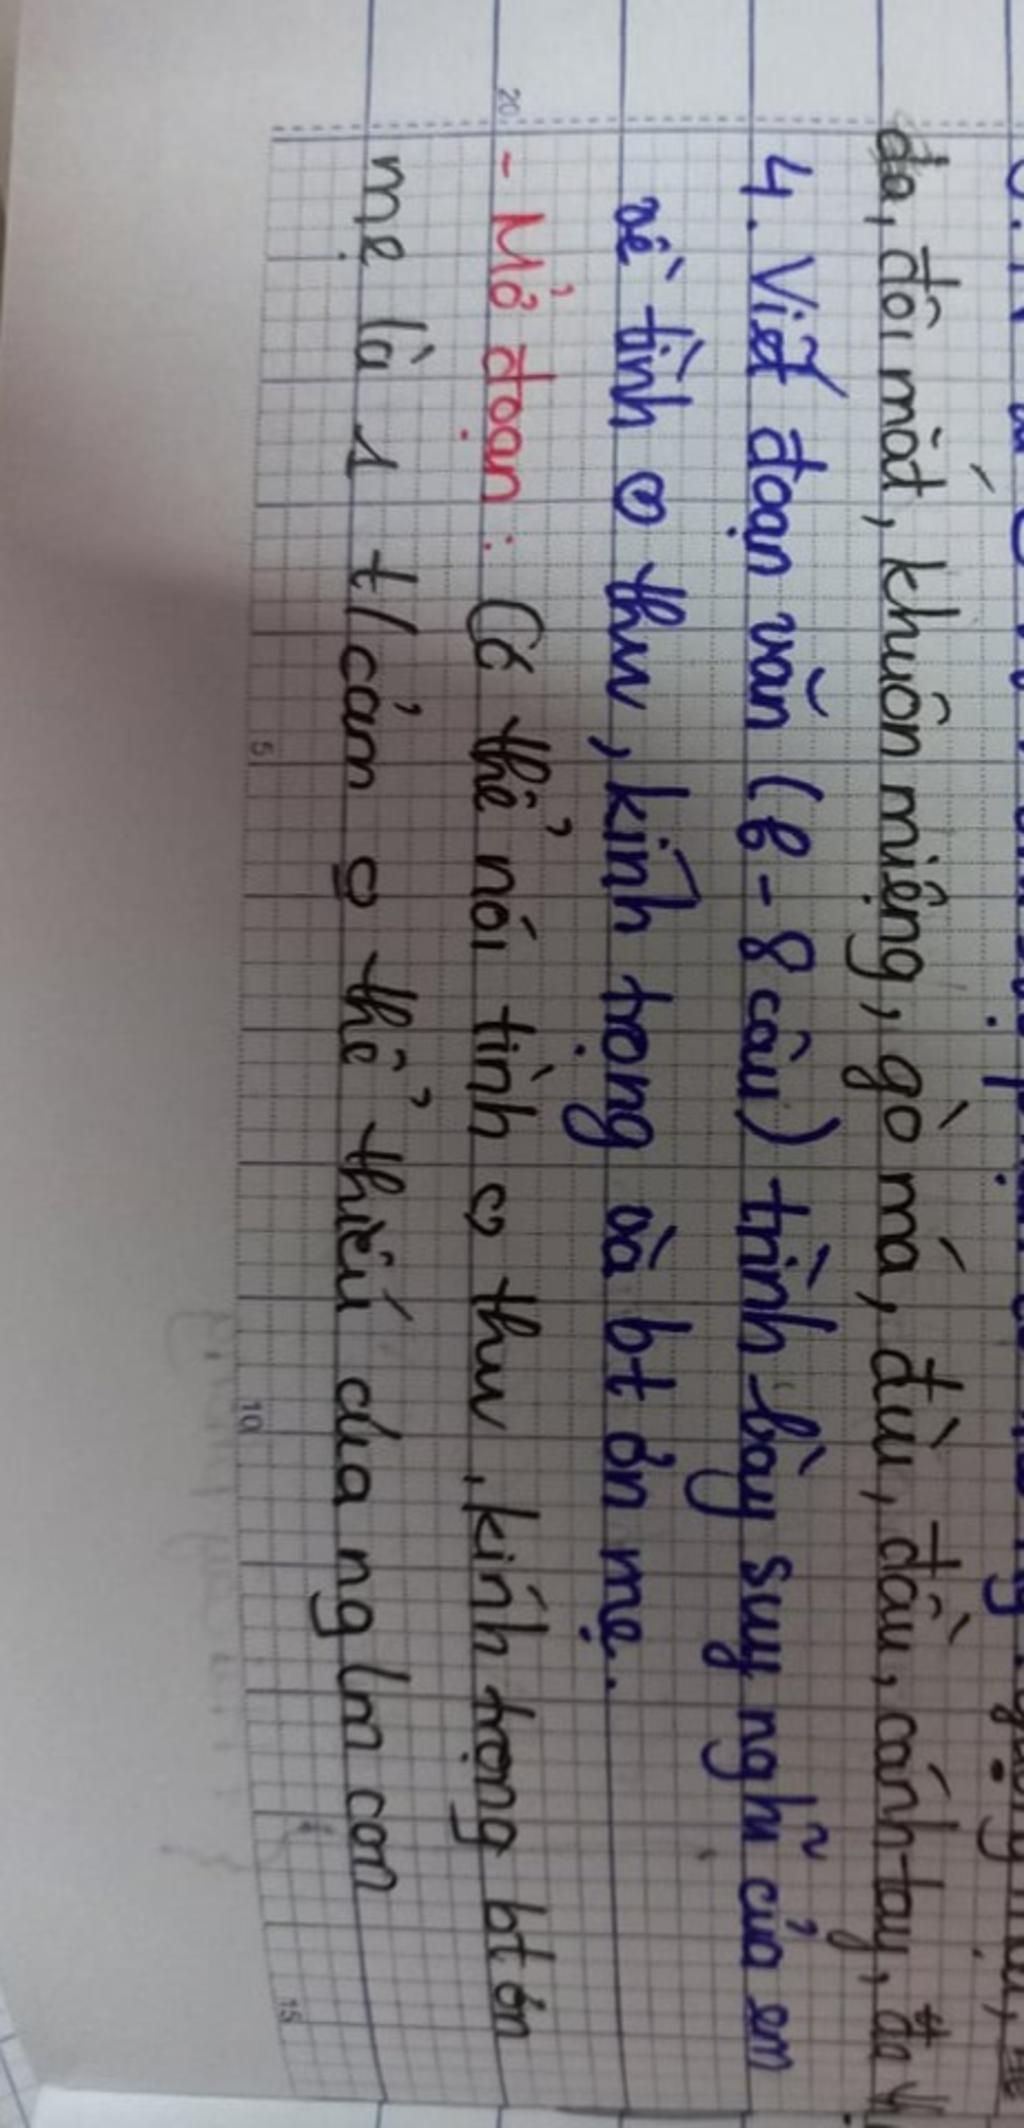 da, đôi mắt, khuôn miệng, gò má, đùi, đầu, cánh tay,
4. Viết đoạn văn (6-8 câu) trình bày suy nghĩ của em
về tình ♡ thw, kính trọng và bt ơn mẹ.
20
- Mở đoạn: Có thể nói tình ♡ thw, kính trọng bt ơn
mẹ là 1 t/cảm o thể thiếu của ng lm con
5 10 15